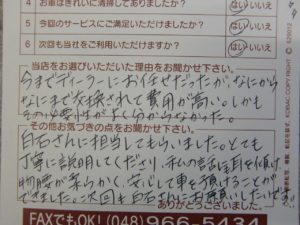 4 お車はきれいに清掃してありましたか? はい・いいえ
5 今回のサービスにご満足いただけましたか? はい・いいえ
6 次回も当社をご利用いただけますか? はい・いいえ
当店をお選びいただいた理由をお聞かせ下さい。
今までディーラーにお任せだったが、なにから
なにまで交換されて費用が高い。しかも
その必要性がよく分からなかった。
その他お気づきの点をお聞かせ下さい。
白石さんに担当してもらいました。とても
丁寧に説明してくださり、私の話にも耳を傾け
物腰が柔らかく、安心して車を預けることが
できました。次回も白石さんにお願いしたいです。
ありがとうございました。
FAXでもOK! (048) 966-5434